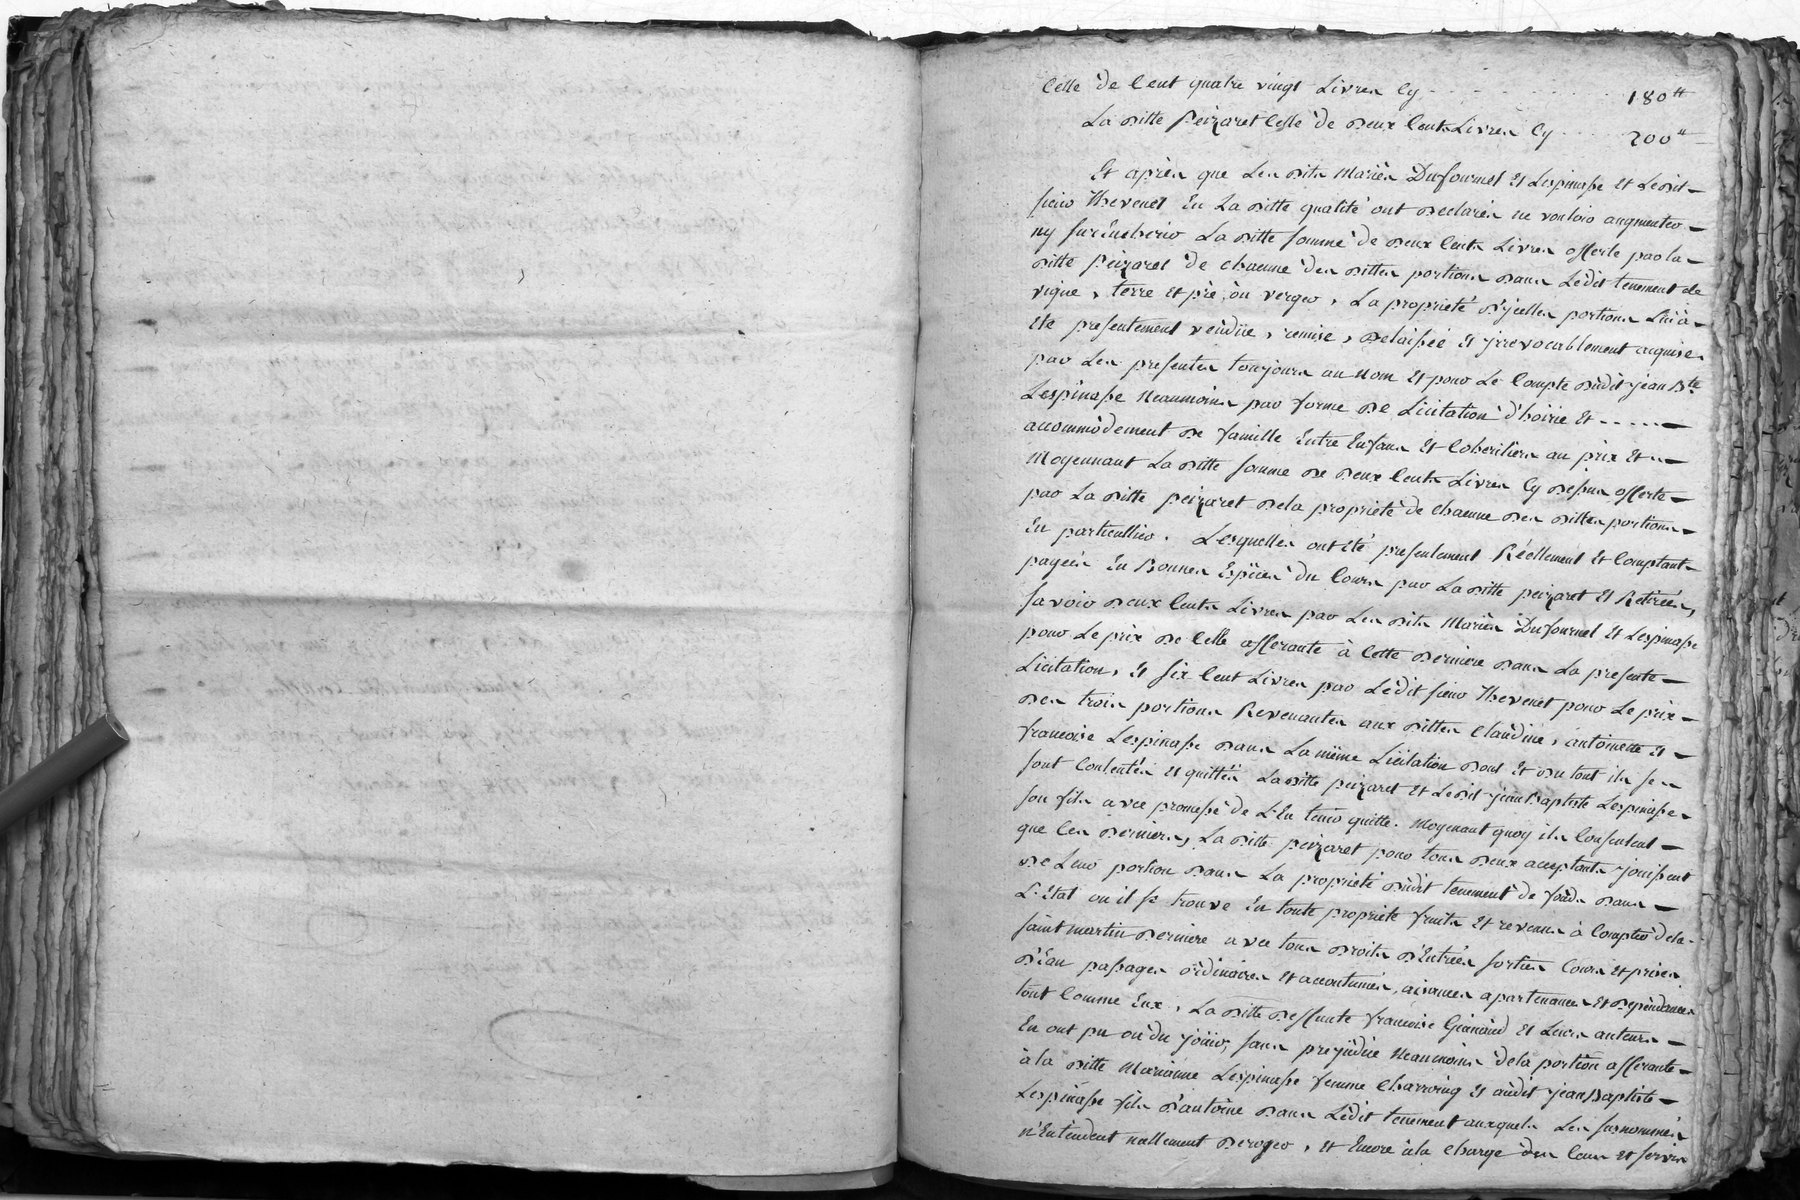 Celle de Cent quatre vingt Livres Cy 180#
La ditte peizaret Celle de deux Cents Livres Cy 200#
Et après que Les dits Mariés Dufournel Et Lespinasse et Ledit
sieur Thevenet En La ditte qualité ont déclarés ne vouloir augmenter
ny surencherir La ditte somme de deux Cents Livres offerte par la
ditte peizaret de chacune des dittes portions dans Ledit tenement de
vigne, terre et pré, ou verger, La proprieté d'jcelles portions Luy à
Eté presentement vendüe, remise, delaissée Et jrrevocablement acquise
par Les presentes toujours au Nom Et pour Le Compte dudit jean Bte
Lespinasse Neanmoins par forme de Licitation d'hoirie Et
accommodement de famille Entre Enfans Et Coheritiers au prix Et
Moyennant La ditte somme de deux Cents Livres Cy dessus offerte
par La ditte peizaret dela proprieté de chacune des dittes portions
En particullier. Lesquelles ont Eté presentement Réellement Et Comptant
payées En Bonnes Espèces du Cours par La ditte peizaret Et Retirées,
savoir deux Cents Livres par Les dits Mariés Dufournel Et Lespinasse
pour Le prix de Celle afferante à Cette derniere dans La presente
Licitation, Et six Cent Livres par Ledit sieur Thevenet pour Le prix
des trois portions Revenantes aux dittes Claudine, antoinette Et
francoise Lespinasse dans La même Licitation dont Et du tout ils se
sont Contentés Et quittés La ditte peizaret Et Ledit jean Baptiste Lespinasse
son fils avec promesse de L'En tenir quitte. Moyenant quoy ils Consentent
que Ces derniers, La ditte peizaret pour tous deux acceptants jouissent
de Leur portion dans La proprieté dudit tenement de fonds dans
L'Etat ou il se trouve En toute proprieté fruits Et revenus à Compter dela
saint martin derniere avec tous droits d'Entrées sorties Cours et prises
d'Eau passages ordinaires Et accoutumés, aisances apartenances Et dependances
tout Comme Eux, La ditte deffunte francoise Et Leurs auteurs
En ont pu ou du jouir, sans prejudice Neanmoins dela portion afferante
à la ditte Marianne Lespinasse femme Charroing Et audit jean Baptiste
Lespinasse fils d'antoine dans Ledit tenement auxquels Les susnommés
n'Entendent nullement deroger, Et Encore à la charge des Cens Et servis